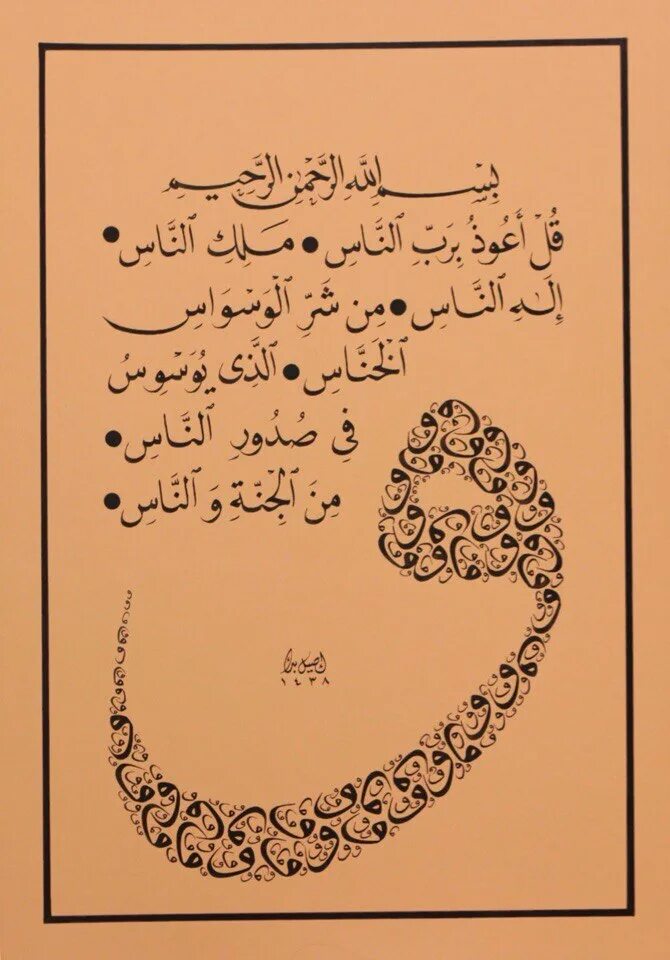 بِسْمِ اللَّهِ الرَّحْمٰنِ الرَّحِيمِ
قُلْ أَعُوذُ بِرَبِّ النَّاسِ ● مَلِكِ النَّاسِ ●
إِلٰهِ النَّاسِ ● مِن شَرِّ الْوَسْوَاسِ
الْخَنَّاسِ ● الَّذِي يُوَسْوِسُ
فِي صُدُورِ النَّاسِ ●
مِنَ الْجِنَّةِ وَ النَّاسِ ●
١٤٣٨